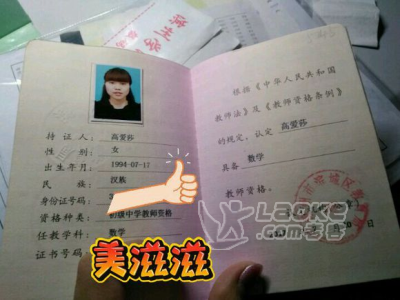 持证人: 高爱莎
性别: 女
出生年月: 1994-07-17
民族: 汉族
身份证号码:
资格种类: 初级中学教师资格
任教学科: 数学
证书号码:
根据《中华人民共和国
教师法》及《教师资格条例》
的规定, 认定 高爱莎
具备 数学
教师资格。
美滋滋
LAOKE
.com 老客